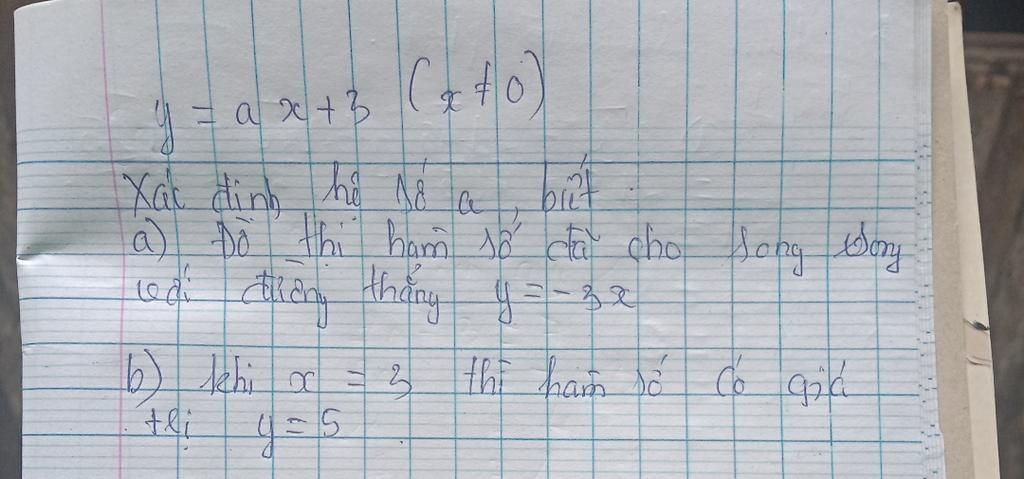 y = a x + 3 (x ≠ 0)
Xác định hệ số a, biết:
a) Đồ thị hàm số đã cho song song
với đường thẳng y = -3x
b) khi x = 3 thì hàm số có giá
trị y = 5